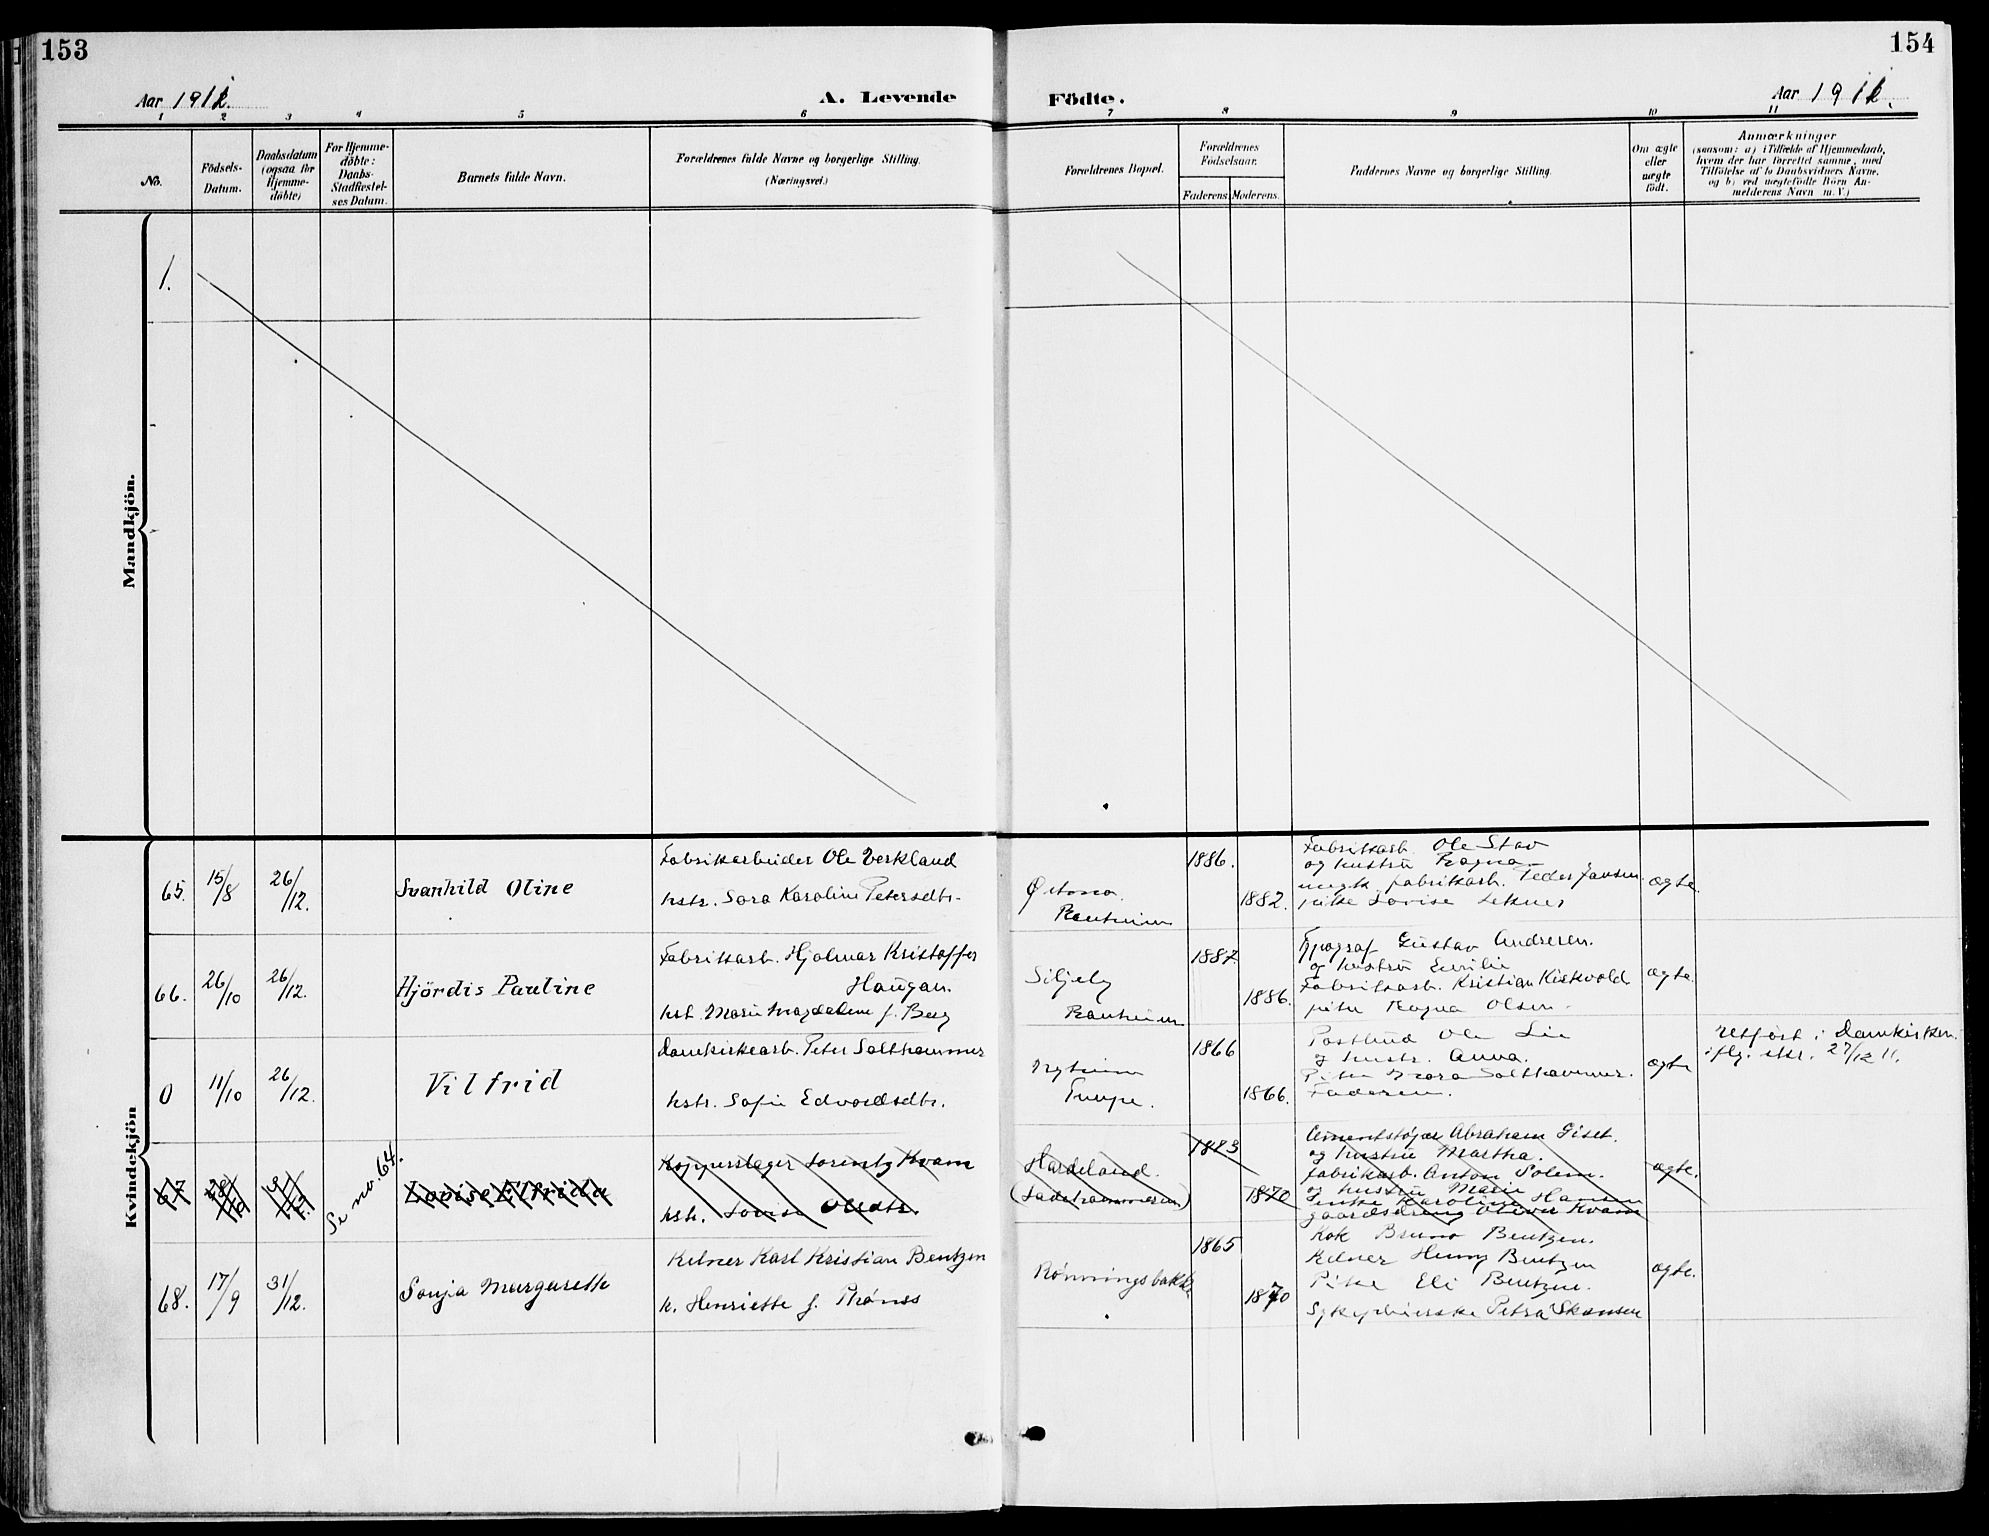 153
154
Aar 1911.
A. Levende
Födte.
Aar 1911.
1 2 3 4 5 6 7 8 9 10 11
No.
Födsels-Datum.
Daabsdatum (ogsaa for Hjemme-döbte)
For Hjemme-döbte: Daabs-Stadfæstel-ses Datum.
Barnets fulde Navn.
Forældrenes fulde Navne og borgerlige Stilling.
(Næringsvei.)
Forældrenes Bopæl.
Forældrenes Fødselsaar.
Faderens. Moderens.
Faddernes Navne og borgerlige Stilling.
Om ægte eller uægte födt.
Anmærkninger
(saasom: a) i Tilfælde af Hjemmedaab,
hvem der har forrettet samme, med
Tilföielse af to Daabsvidners Navne,
og b) ved uægtefödte Börn An-
melderens Navn m. V.)
Mandkjön.
1.
Kvindekjön
65. 15/8 26/12. Svanhild Oline
Fabrikarbeider Ole Verkland
hstr. Sara Karoline Petersdtr.
Ranheim
1886.
1882.
Fabrikarb. Ole Stav
og hustru Ragna
ungk. fabrikarb. Peder Jansen
pike Lovise
ægte
66. 26/10 26/12. Hjördis Pauline
Fabrikarb. Hjalmar Kristoffer
Haugan.
hst. Marie Magdalene f. Berg
Siljeby
Ranheim
1887.
1886.
Typograf Gustav Andresen.
og hustru Emilie
Fabrikarb. Kristian Kiskvold
pike Ragna Olsen
ægte.
0 11/10 26/12. Vilfrid
Domkirkearb. Peter Salthammer
hstr. Sofie Edvardsdtr.
Nyheim
Tempe.
1866
1866.
Postbud Ole Lie
og hustr. Anna.
Pike Nora Salthammer.
Faderen.
ægte
Retført i Domkirken
iflg. skr. 27/12 11.
67 Se no. 64. Lovise Elfrida
Kopperslager Lorentz Kvam
hstr. Lovise Olsdtr.
Hardeland.
(Ladehammeren)
1883
1870
Cementstøper Abraham Giset.
og hustru Martha.
fabrikarb. Anton Solem.
og hustru Marie
enke Karoline Hansen
gaardsdreng Oliver Kvam
ægte.
68. 17/9 31/12. Sonja Margarethe
Kelner Karl Kristian Bentzen
h. Henriette f. Thönes
Rønningsbakke
1865
1870
Kok Bruno Bentzen.
Kelner Henry Bentzen
Pike Eli Bentzen.
Sykepleierske Petra Skansen
ægte.